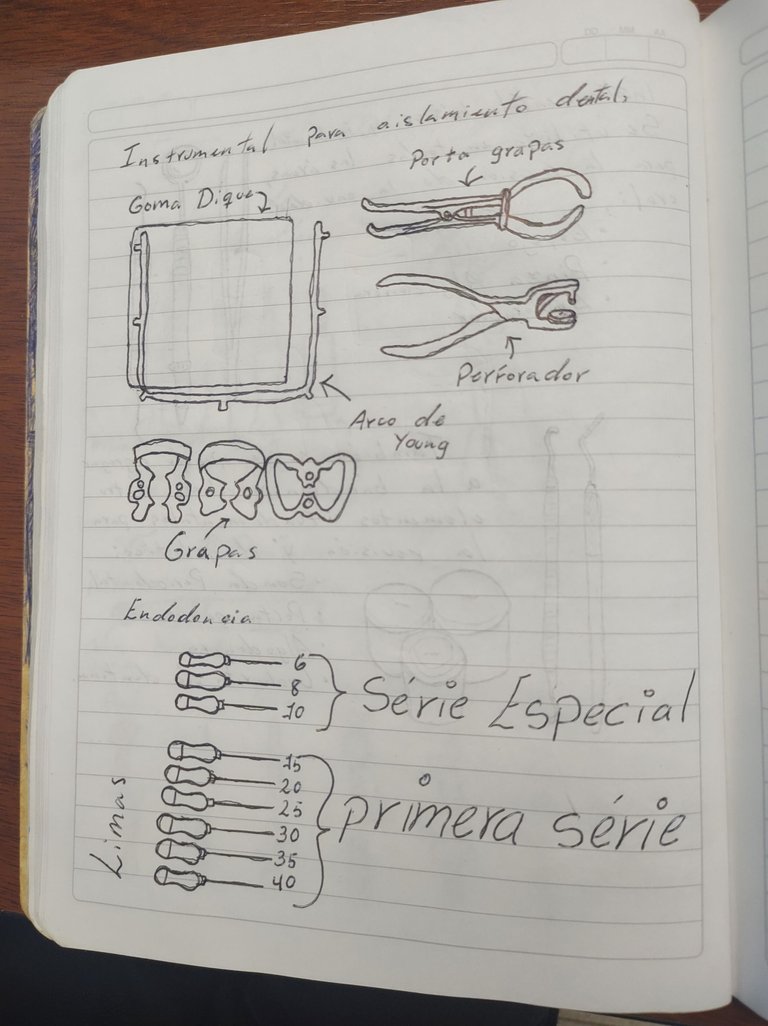 Instrumental para aislamiento dental,
Porta grapas
Goma Dique
Perforador
Arco de
Young
Grapas
Endodoncia
6
8
10
Série Especial
Limas
15
20
25
30
35
40
primera série